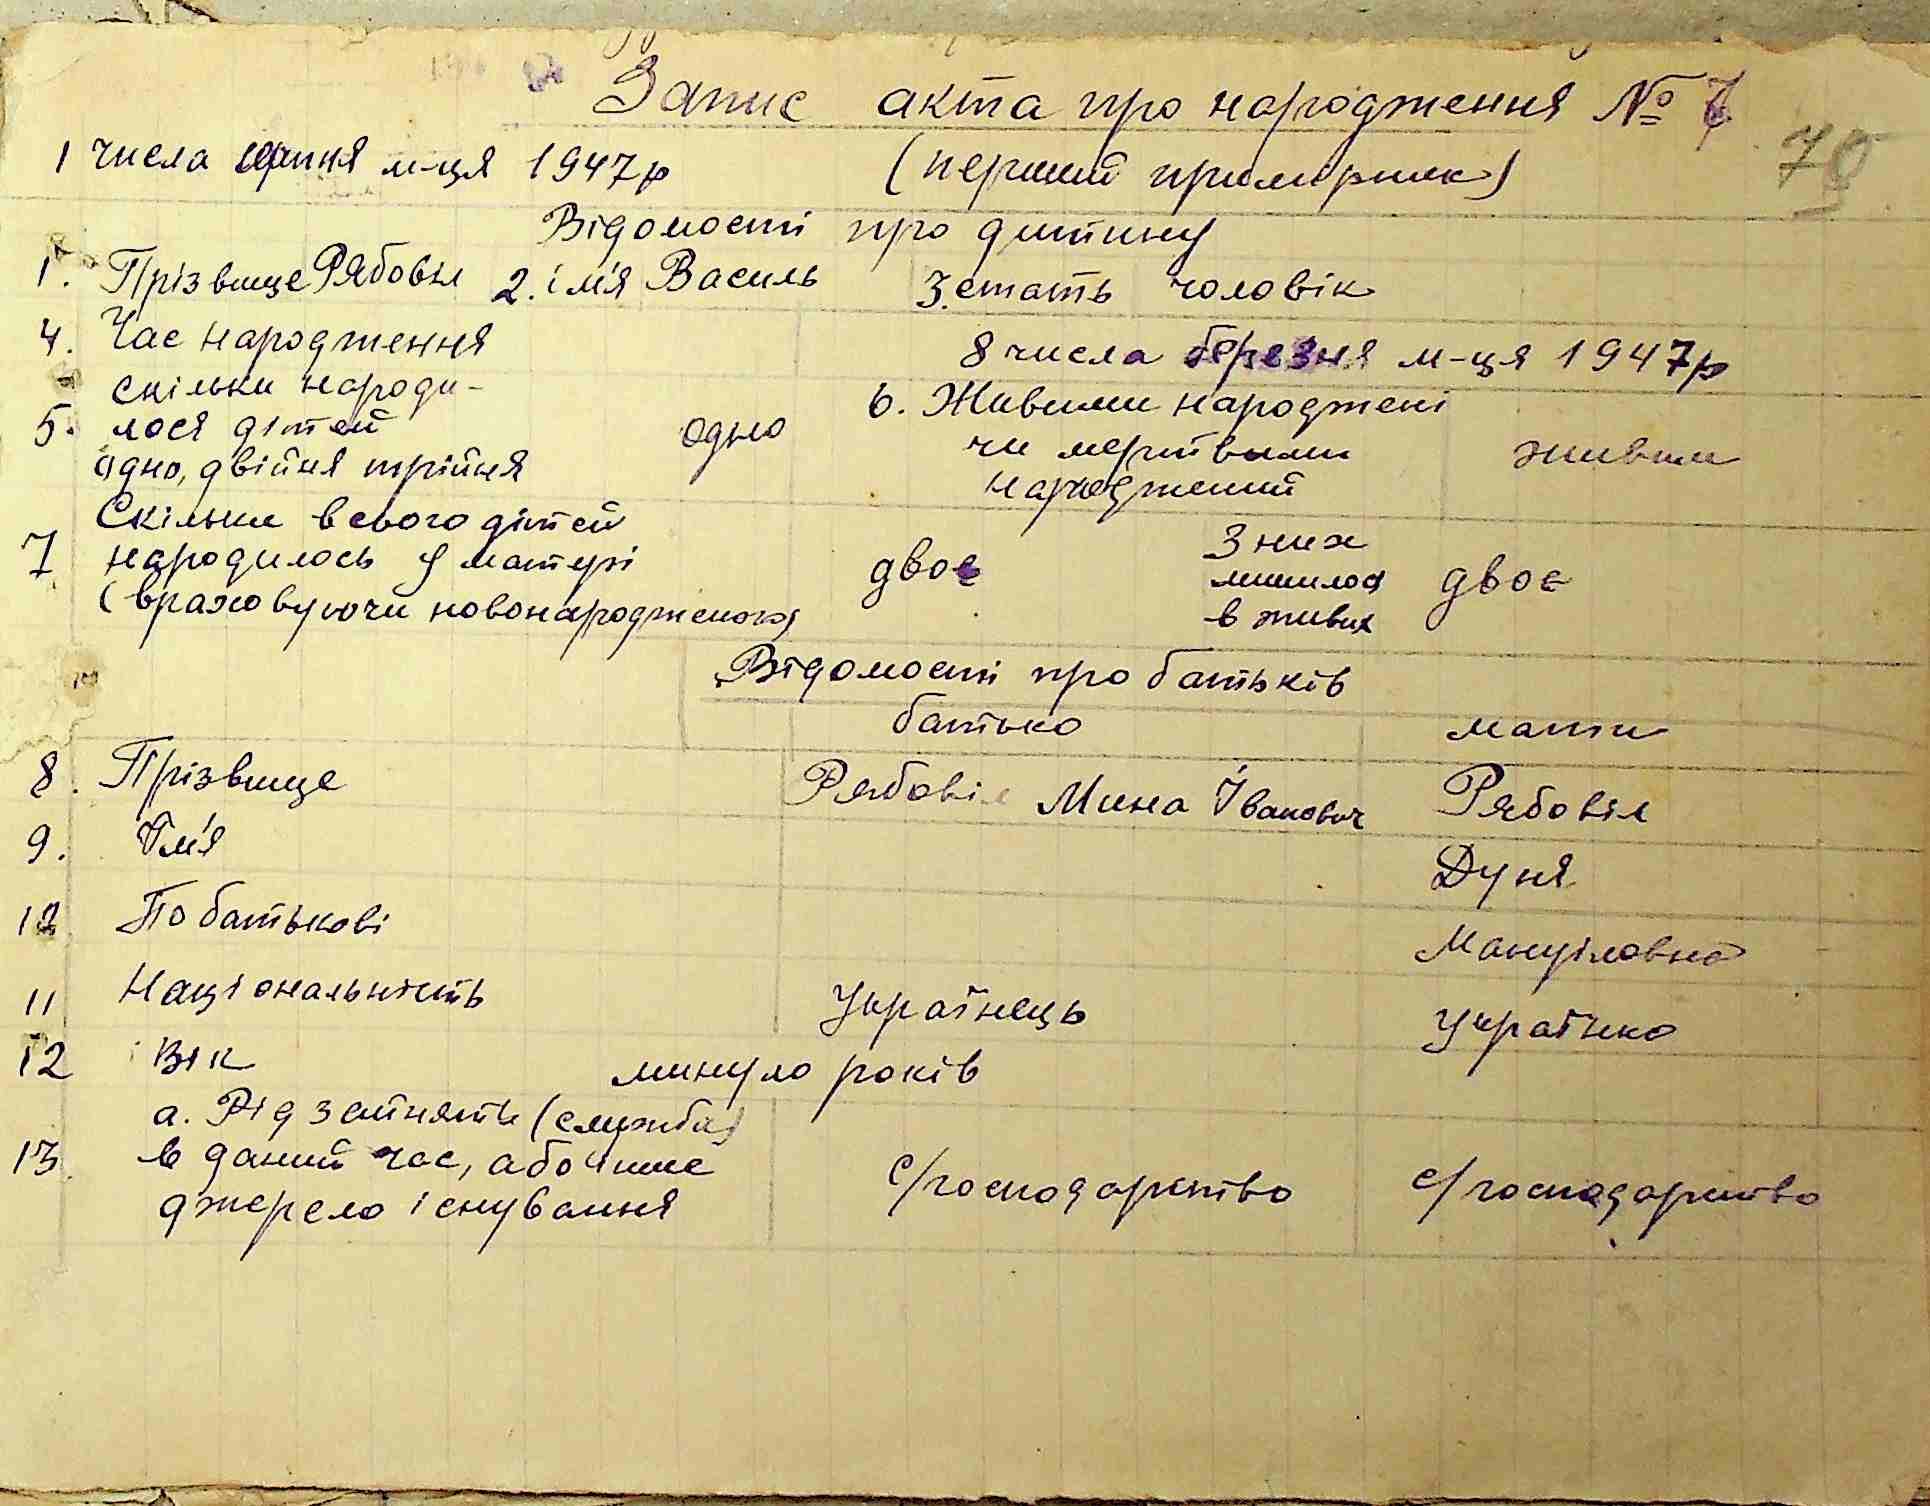 Запис акта про народження № 7
70
1 числа м-ця 1947р (перший примірник)
Відомості про дитину
1. Прізвище Рябовіл 2. ім'я Василь 3. стать чоловік
4. Час народження 8 числа березня м-ця 1947р
скільки народи-
5. лося дітей
одно, двійня трійня
одно
6. Живими народжені
чи мертвими
народжений
живим
Скільки всього дітей
7 народилось у матері
(враховуючи новонародженого)
двоє
З них
лишилося
в живих
двоє
Відомості про батьків
батько мати
8. Прізвище Рябовіл Мина Іванович Рябовіл
9. Ім'я Дуня
10 По батькові Мануіловна
11 Національність Українець Українка
12 Вік минуло років
а. Рід занять (служба)
13. в даний час, або інше
джерело існування
с/господарство с/господарство